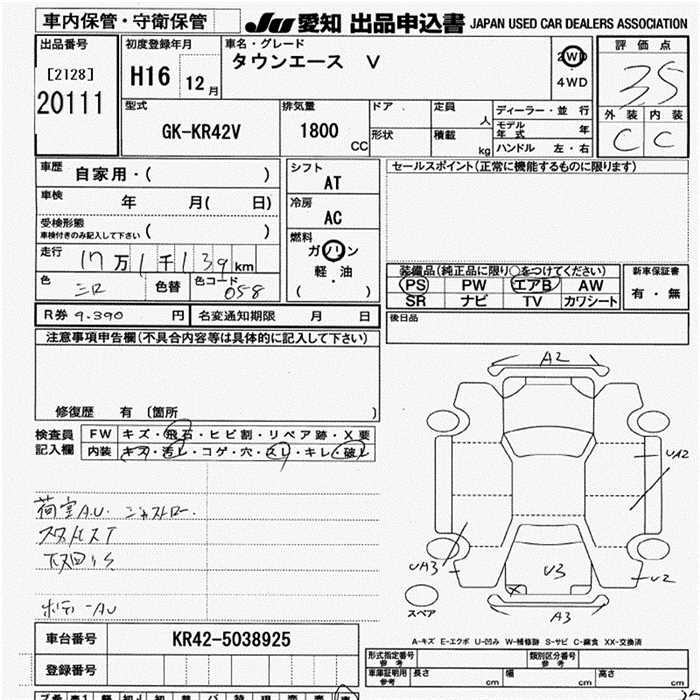 車内保管・守衛保管
JU 愛知 出品申込書 JAPAN USED CAR DEALERS ASSOCIATION
出品番号
[2128]
20111
初度登録年月
H16 12月
車名・グレード
タウンエース V
2WD
4WD
評価点
35
外装 内装
C C
型式
GK-KR42V
排気量
1800 CC
ドア
形状
定員 人
積載 kg
ディーラー・並行
モデル年式 年
ハンドル 左・右
車歴 自家用・( )
車検 年 月( 日)
受検形態
車検付きのみ記入して下さい ( )
走行 17万1千139km
色 シロ 色替 色コード 058
シフト
AT
冷房
AC
燃料
ガソリン
軽・油
( )
セールスポイント(正常に機能するものに限ります)
装備品(純正品に限り○をつけてください)
PS PW エアB AW
SR ナビ TV カワシート
新車保証書
有・無
後日品
R券 9.390 円 名変通知期限 月 日
注意事項申告欄(不具合内容等は具体的に記入して下さい)
修復歴 有 〔箇所 〕
検査員記入欄
FW キズ・飛石・ヒビ割・リペア跡・X要
内装 キズ・汚レ・コゲ・穴・スレ・キレ・破レ
荷室A.U.
ボディーAU
A2
UA2
UA3
U3
U2
A3
スペア
A-キズ E-エクボ U-凹み W-補修跡 S-サビ C-腐食 XX-交換済
車台番号 KR42-5038925
登録番号
形式指定番号 参考
類別区分番号 参考
車庫証明用 参考 長さ cm 幅 cm 高さ cm